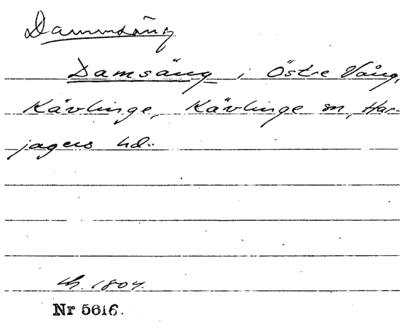 Dammsäng
Damsäng i Östre Vång,
Kävlinge, Kävlinge sn, Har-
jagers hd.
1804.
Nr 5616.